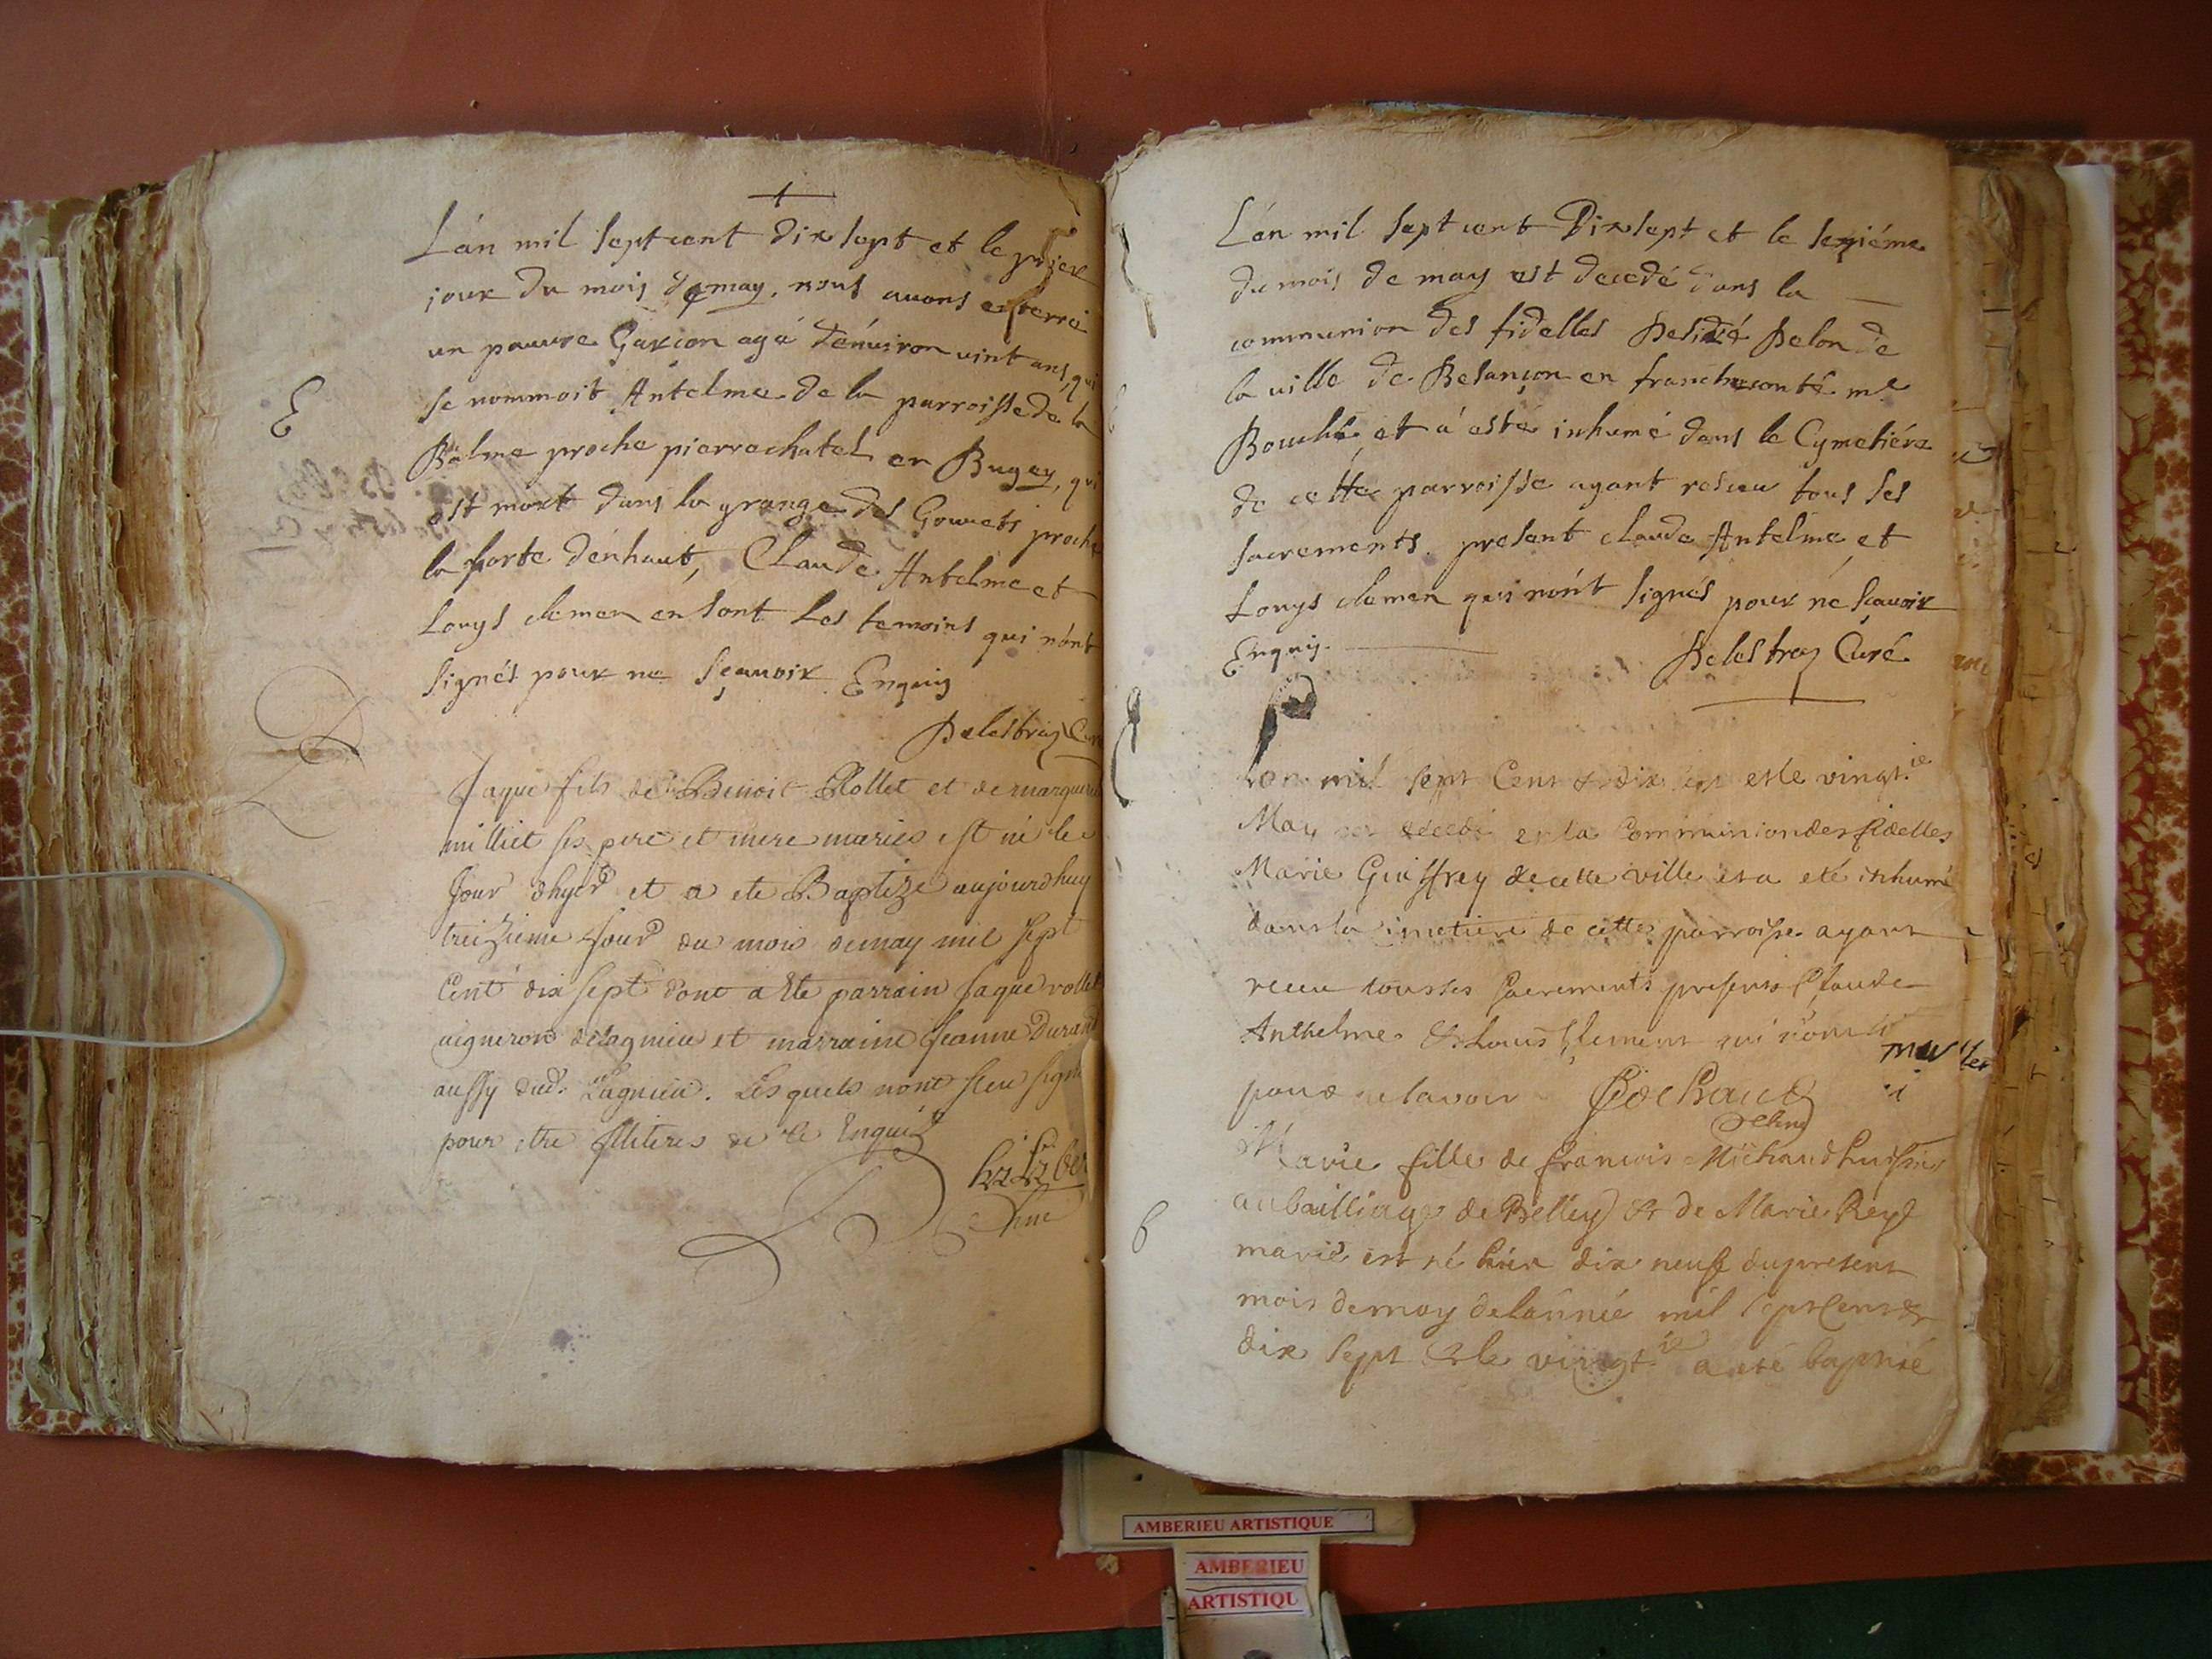 L'an mil sept cent dix sept et le
jour du mois de may, nous auons enterré
un pauure Garcion agé d'énuiron uint ans, qui
E
se nommoit Antelme de la parroisse dé la
Balme proche pierrechatel en Bugey, qui
est mort dans la grange des Gouuets proche
la porte d'énhaut, Claude Antelme et
Louys clemen en sont les temoins qui n'ont
signés pour ne sçauoir Enquis
Delestraz Curé
Jaque fils de Benoit Rollet et de
milliet ses pere et mere mariés est né le
Jour d'hyer et a ete Baptize aujourdhuy
treizieme Jour du mois demay mil sept
Cent dix sept dont a Ete parrain Jaque rollet
uigneron delagnieu et marraine Jeanne Durand
aussy dud. Lagnieu. Lesquels nont sceu signer
pour etre de ce Enquis
L'án mil sept cent Dix sept et le seziéme
du mois de may est decedé dans la
communion des fidelles Desiré Delon de
la uille de Besançon en franchecomté me
et á esté inhumé dans le Cymetiére
de cette parroisse ayant reseu tous ses
sacrements. present claude Antelme, et
Louys clemen qui n'ónt signés pour ne sçauoir
Enquis.
Delestraz Curé
mil sept Cent & dix sept et le vingt.ie
May est decedé en la Communion des fidelles
Marie Guiffrey de cette ville et a eté inhumé
dans la cimetiere de cette parroisse ayant
receu tous ses sacrements presents Claude
Anthelme & Louis Clement qui n'ont
pour ne savoir
Marie fille de francois Michaud huissier
6
au bailliage de Belley & de Marie Rey
marié est né hier dix neuf du present
mois de may de lannée mil sept Cent &
dix sept & le vingt.ie a eté baptisé
AMBERIEU ARTISTIQUE
AMBERIEU
ARTISTIQU